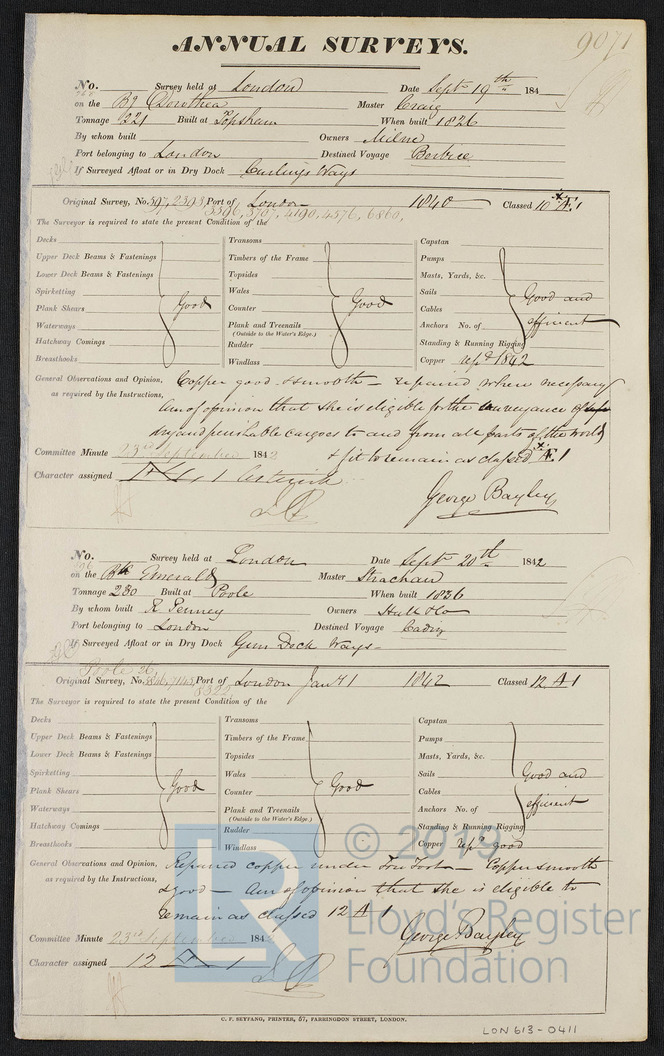 ANNUAL SURVEYS.
9071
No. Survey held at London Date Sept 19th 184
on the Bg Dorothea Master Craig
Tonnage 221 Built at Topsham When built 1826
By whom built Owners Milne
Port belonging to London Destined Voyage Berbice
If Surveyed Afloat or in Dry Dock Curlings Ways
Original Survey, No. 597, 2393 Port of London 1840 Classed 10 Æ 1
3396, 3707, 4190, 4576, 6860,
The Surveyor is required to state the present Condition of the
Decks Transoms Capstan
Upper Deck Beams & Fastenings Timbers of the Frame Pumps
Lower Deck Beams & Fastenings Topsides Masts, Yards, &c.
Spirketting Wales Sails Good and
Plank Shears Good Counter Good Cables
Waterways Plank and Treenails Anchors No. of efficient
(Outside to the Water's Edge.)
Hatchway Comings Rudder Standing & Running Rigging
Breasthooks Windlass Copper repd 1842
General Observations and Opinion, Copper good & smooth – repaired where necessary
as required by the Instructions, Am of opinion that she is eligible for the conveyance of
dry and perishable cargoes to and from all parts of the world
Committee Minute 23rd September 1842 & fit to remain as classed Æ 1
Character assigned Æ 1 Asterisk
George Bayley
No. Survey held at London Date Sept 20th 1842
on the Bk Emerald Master Strachan
Tonnage 230 Built at Poole When built 1836
By whom built R Penney Owners Hall & Co
Port belonging to London Destined Voyage Cadiz
If Surveyed Afloat or in Dry Dock Gun Dock Ways –
Poole 26,
Original Survey, No. Port of London Jany 1 1842 Classed 12 A 1
8322
The Surveyor is required to state the present Condition of the
Decks Transoms Capstan
Upper Deck Beams & Fastenings Timbers of the Frame Pumps
Lower Deck Beams & Fastenings Topsides Masts, Yards, &c.
Spirketting Wales Sails Good and
Plank Shears Good Counter Good Cables
Waterways Plank and Treenails Anchors No. of efficient
(Outside to the Water's Edge.)
Hatchway Comings Rudder Standing & Running Rigging
Breasthooks Windlass Copper repd good
General Observations and Opinion, Repaired copper under Fore Foot – Copper smooth
as required by the Instructions, & good – Am of opinion that she is eligible to
remain as classed 12 A 1
Committee Minute 23rd September 184
George Bayley
Character assigned 12 A 1
LR © 2019
Lloyd's Register
Foundation
C. F. SEYFANG, PRINTER, 57, FARRINGDON STREET, LONDON.
LON613-0411